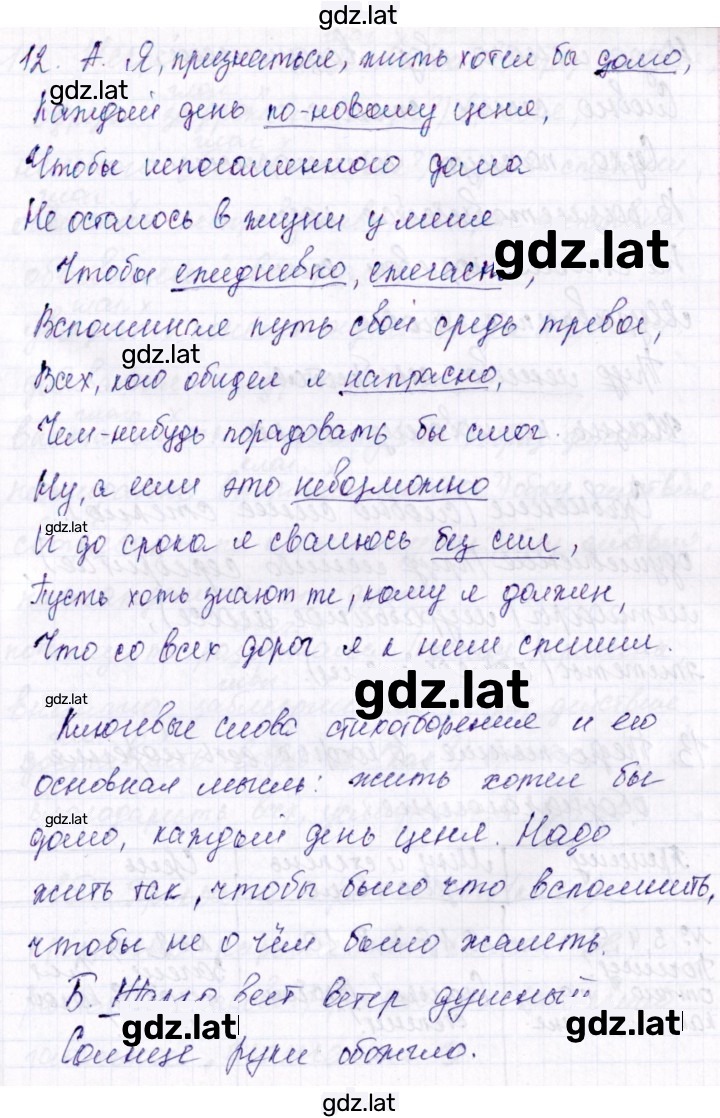 gdz.lat
12. А. Я, признаться, жить хотел бы долго,
gdz.lat
Каждый день по-новому ценя,
Чтобы непогашенного долга
Не осталось в жизни у меня
gdz.lat
Чтобы ежедневно, ежечасно,
Вспоминая путь свой средь тревог,
gdz.lat
Всех, кого обидел я напрасно,
Чем-нибудь порадовать бы смог.
Ну, а если это невозможно
gdz.lat
И до срока я свалюсь без сил,
Пусть хоть знают те, кому я должен,
Что со всех дорог я к ним спешил.
gdz.lat
gdz.lat
Ключевые слова стихотворения и его
основная мысль: жить хотел бы
долго, каждый день ценя. Надо
жить так, чтобы было что вспомнить,
чтобы не о чём было жалеть.
Б. веет ветер душный
gdz.lat
gdz.lat
Солнце руки обожгло.
gdz.lat